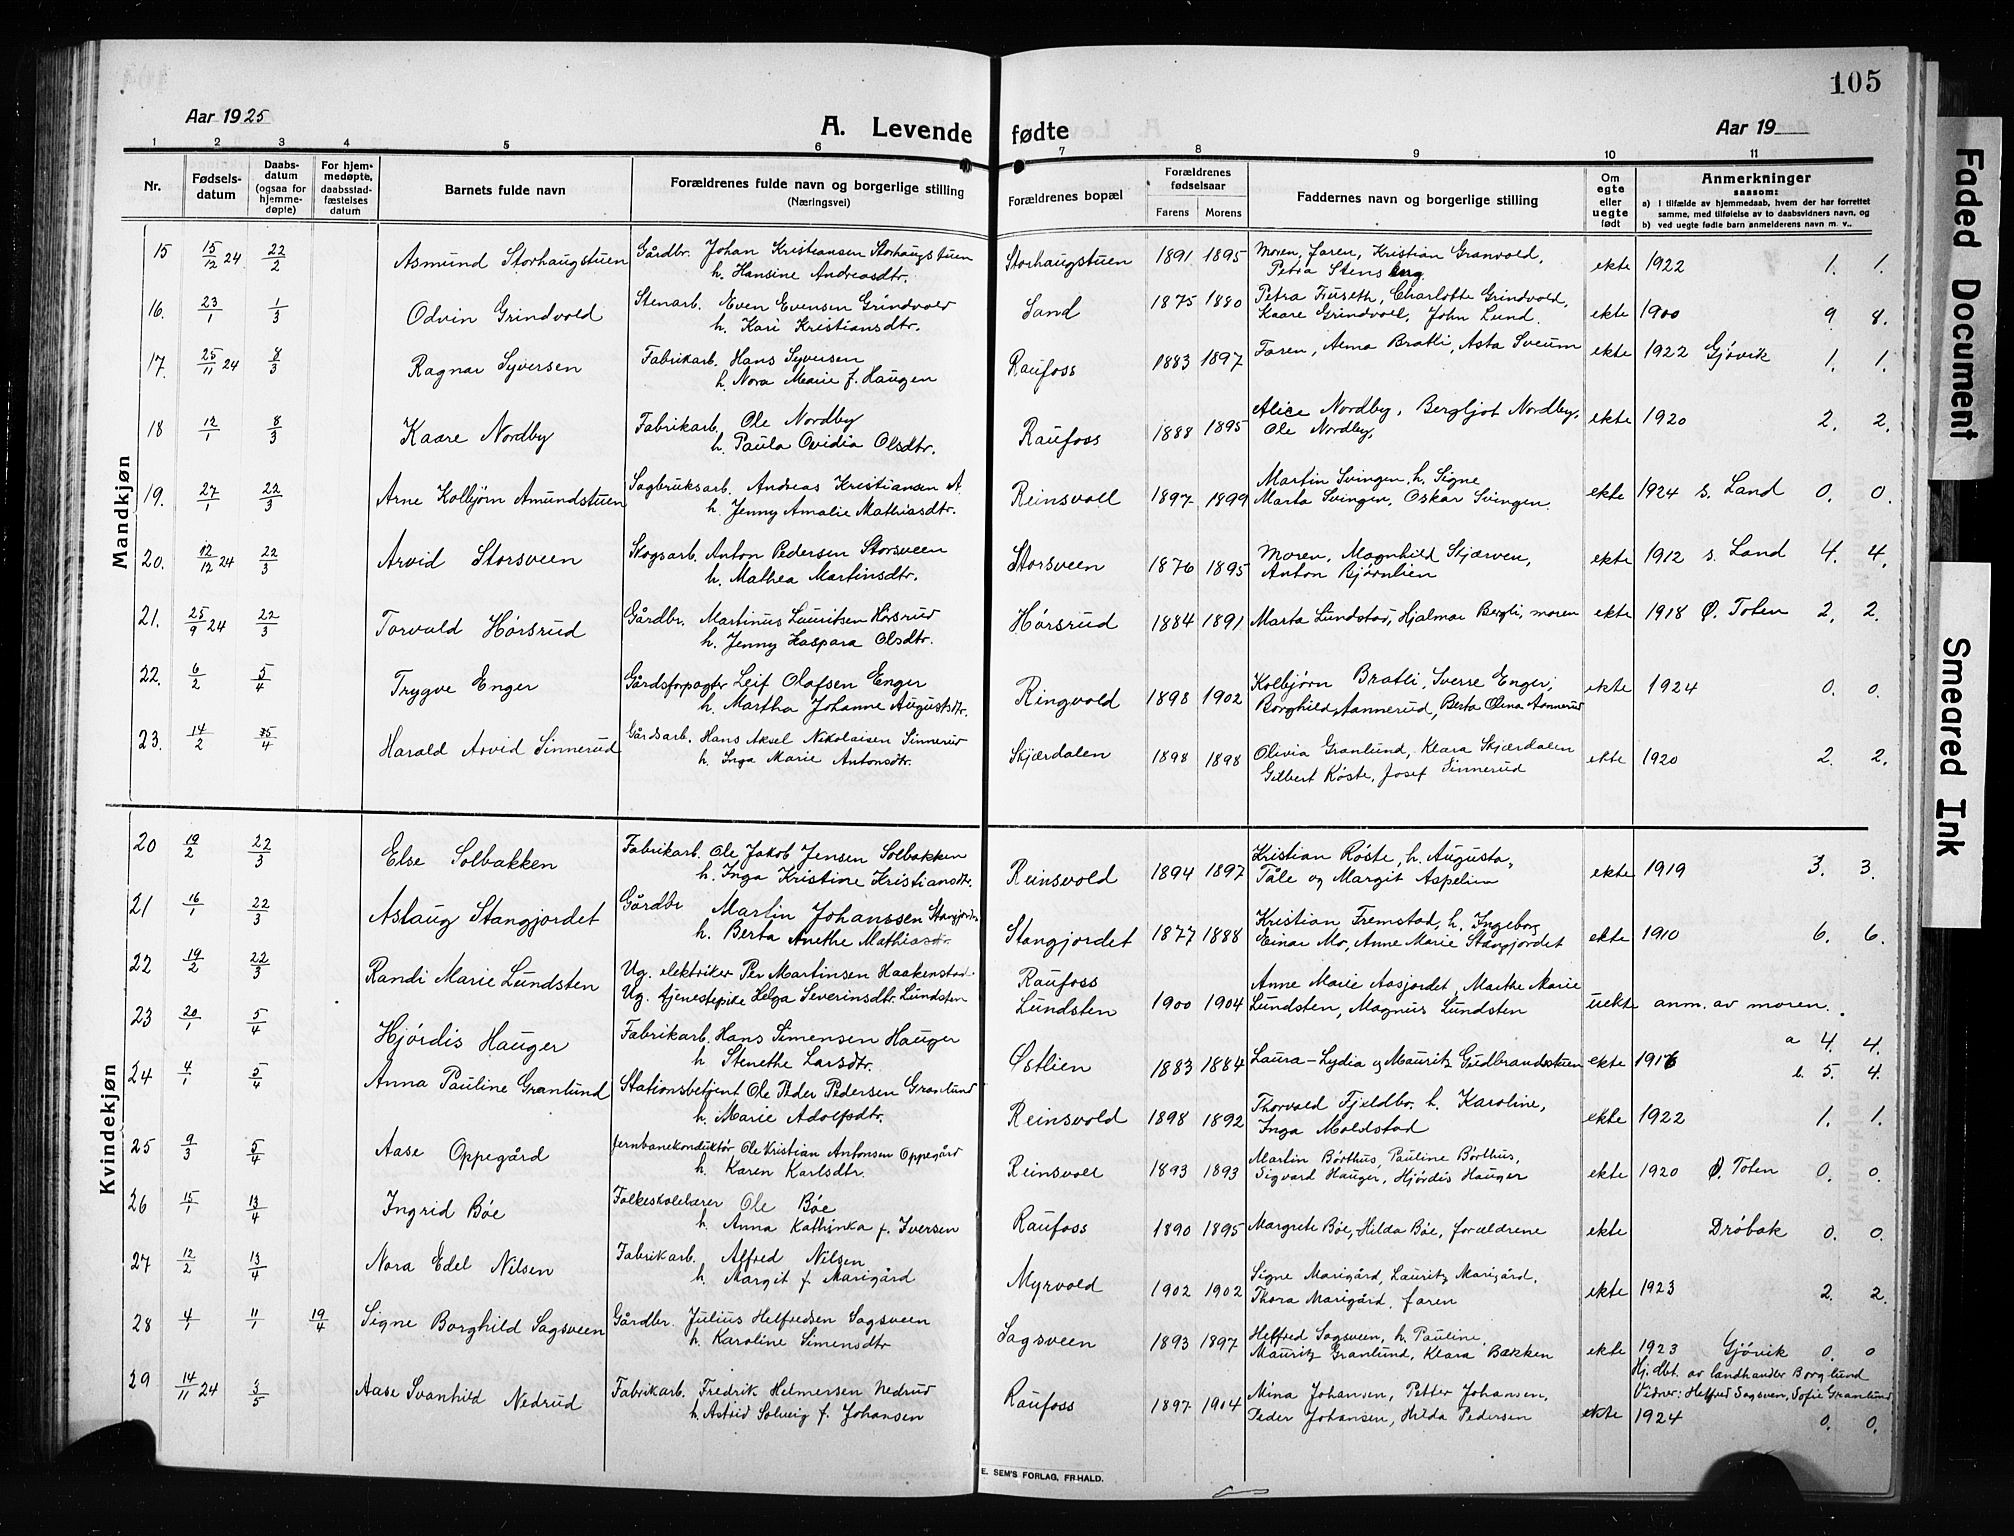 105
Aar 1925
A. Levende fødte
Aar 19
1 2 3 4 5 6 7 8 9 10 11
Nr.
Fødselsdatum
Daabsdatum (ogsaa for hjemmedøpte)
For hjemmedøpte, daabsstadfæstelses datum
Barnets fulde navn
Forældrenes fulde navn og borgerlige stilling
(Næringsvei)
Forældrenes bopæl
Forældrenes fødselsaar
Farens Morens
Faddernes navn og borgerlige stilling
Om egte eller uegte født
Anmerkninger
saasom:
a) I tilfælde av hjemmedaab, hvem der har forrettet
samme, med tilføielse av to daabsvidners navn, og
b) ved uegte fødte barn anmelderens navn m. v..
Mandkjøn
15 15/12 24 22/2 Asmund Storhaugstuen Gårdbr. Johan Kristiansen Storhaugstuen Storhaugstuen 1891 1895 Moren, faren, Kristian Granvold, ekte 1922 1. 1.
h. Hansine Andreasdtr. Petra Stensberg
16. 23/1 1/3 Odvin Grindvold Stenarb. Even Evensen Grindvold Sand 1875 1880 Petra Fuseth, Charlotte Grindvold, ekte 1900 9 8.
h. Kari Kristiansdtr. Kaare Grindvoll, John Lund.
17. 25/11 24 8/3 Ragnar Syversen Fabrikarb. Hans Syversen Raufoss 1883 1897 Faren, Alma Bratli, Asta Sveum ekte 1922 Gjøvik 1. 1.
h. Nora Marie f. Haugen
18 12/1 8/3 Kaare Nordby Fabrikarb. Ole Nordby Raufoss 1888 1895 Alice Nordby, Bergljot Nordby, ekte 1920 2. 2.
h. Paula Ovidia Olsdtr. Ole Nordby,
19. 27/1 22/3 Arne Kolbjørn Amundstuen Sagbruksarb. Andreas Kristiansen A. Reinsvoll 1897 1899 Martin Svingen, h. Signe ekte 1924 s. Land 0. 0.
h. Jenny Amalie Mathiasdtr. Marta Svingen, Oskar Svingen.
20. 12/12 24 22/3 Arvid Storsveen Skogsarb. Anton Pedersen Storsveen Storsveen 1876 1895 Moren, Magnhild Skjærven, ekte 1912 s. Land 4. 4.
h. Mathea Martinsdtr. Anton Bjørnlien
21. 25/9 24 22/3 Torvald Hørsrud Gårdbr. Martinus Lauritsen Hørsrud Hørsrud 1884 1891 Marta Lundstad, Hjalmar Bergli, moren ekte 1918 Ø. Toten 2. 2.
h. Jenny Kaspara Olsdtr.
22. 6/2 5/4 Trygve Enger Gårdsforpagter Leif Olafsen Enger Ringvold 1898 1902 Kolbjørn Bratli, Sverre Enger, ekte 1924 0. 0.
h. Martha Johanne Augustsdtr. Borghild Aannerud, Berta Olina Aannerud
23. 14/2 /4 Harald Arvid Sinnerud Gårdsarb. Hans Aksel Nikolaisen Sinnerud Skjærdalen 1898 1898 Olivia Granlund, Klara Skjærdalen ekte 1920 2. 2.
h. Inga Marie Antonsdtr. Gilbert Røste, Josef Sinnerud
Kvindekjøn
20 19/2 22/3 Else Solbakken Fabrikarb. Ole Jakob Jensen Solbakken Reinsvold 1894 1897 Kristian Røste, h. Augusta, ekte 1919 3. 3.
h. Inga Kristine Kristiansdtr. Tåle og Margit Aspelien
21 16/1 22/3 Aslaug Stangjordet Gårdbr Martin Johanssen Stangjordet Stangjordet 1877 1888 Kristian Fremstad, h. Ingeborg ekte 1910 6. 6.
h. Berta Anethe Mathiasdtr. Einar Mo, Anne Marie Stangjordet
22 19/2 22/3 Randi Marie Lundsten Ug. elektriker Per Martinsen Haakenstad. Raufoss Anne Marie Aasjordet, Marthe Marie
Ug. tjenestepike Helga Severinsdtr. Lundsten Lundsten 1900 1904 Lundsten, Magnus Lundsten uekte anm. av moren.
23 20/1 5/4 Hjørdis Hauger Fabrikarb. Hans Simensen Hauger Østlien 1883 1884 Laura-Lydia og Mauritz Gudbrandsstuen ekte 1916 a 4. 4.
h Stenethe Larsdtr. b. 5. 4.
24 4/1 5/4 Anna Pauline Granlund Stationsbetjent Ole Peder Pedersen Granlund Reinsvold 1898 1892 Thorvald Fjeldbo, h. Karoline, ekte 1922 1. 1.
h. Marie Adolfsdtr. Inga Moldstad
25 9/3 5/4 Aase Oppegård Jernbanekonduktør Ole Kristian Antonsen Oppegård Reinsvoll 1893 1893 Martin Børthus, Pauline Børthus, ekte 1920 Ø. Toten 0. 0.
h. Karen Karlsdtr. Sigvard Hauger, Hjørdis Hauger
26 15/1 13/4 Ingrid Bøe Folkeskolelærer Ole Bøe Raufoss 1890 1895 Margrete Bøe, Hilda Bøe, forældrene ekte Drøbak 0. 0.
h. Anna Kathinka f. Iversen
27 12/2 13/4 Nora Edel Nilsen Fabrikarb. Alfred Nilsen Myrvold 1902 1902 Signe Marigård, Lauritz Marigård, ekte 1923 2. 2.
h. Margit f. Marigård Thora Marigård, faren
28 4/1 11/1 19/4 Signe Borghild Sagsveen Gårdbr. Julius Helfredsen Sagsveen Sagsveen 1893 1897 Helfred Sagsveen, h. Pauline, ekte 1923 Gjøvik 0. 0
h. Karoline Simensdtr Mauritz Granlund, Klara Bakken Hj. dbt. av landhandler Borglund
Vidner: Helfred Sagsven, Sofie Granlund
29 14/11 24 3/5 Aase Svanhild Nedrud Fabrikarb. Fredrik Helmersen Nedrud Raufoss 1897 1904 Mina Johansen, Petter Johansen, ekte 1924 0. 0.
h. Astrid Solveig f. Johansen Peder Johansen, Hilda Pedersen
E. SEM'S FORLAG, FR.HALD.
Faded Document
Smeared Ink